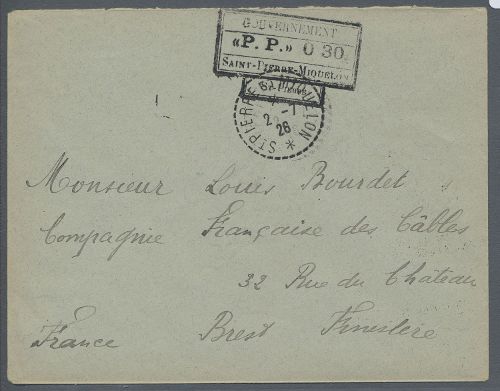 GOUVERNEMENT
«P. P.» 0 30
SAINT-PIERRE-MIQUELON
ST PIERRE & MIQUELON *
2 -1
26
Monsieur Louis Bourdet
Compagnie Française des Câbles
32 Rue du Château
France Brest Finistère